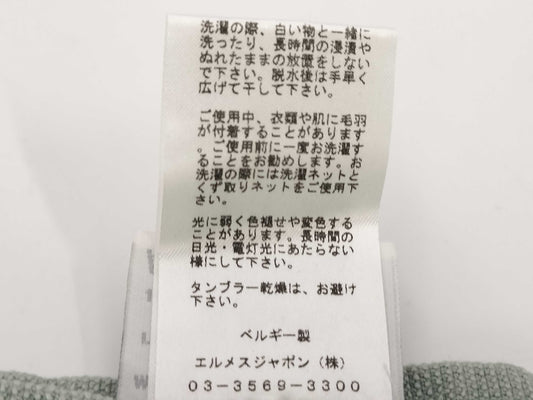 洗濯の際、白い物と一緒に
洗ったり、長時間の浸漬や
ぬれたままの放置をしない
で下さい。脱水後は手早く
広げて干して下さい。
ご使用中、衣類や肌に毛羽
が付着することがあります
。ご使用前に一度お洗濯す
ることをお勧めします。お
洗濯の際には洗濯ネットと
くず取りネットをご使用下
さい。
光に弱く色褪せや変色する
ことがあります。長時間の
日光・電灯光にあたらない
様にして下さい。
タンブラー乾燥は、お避け
下さい。
ベルギー製
エルメスジャポン（株）
03－3569－3300